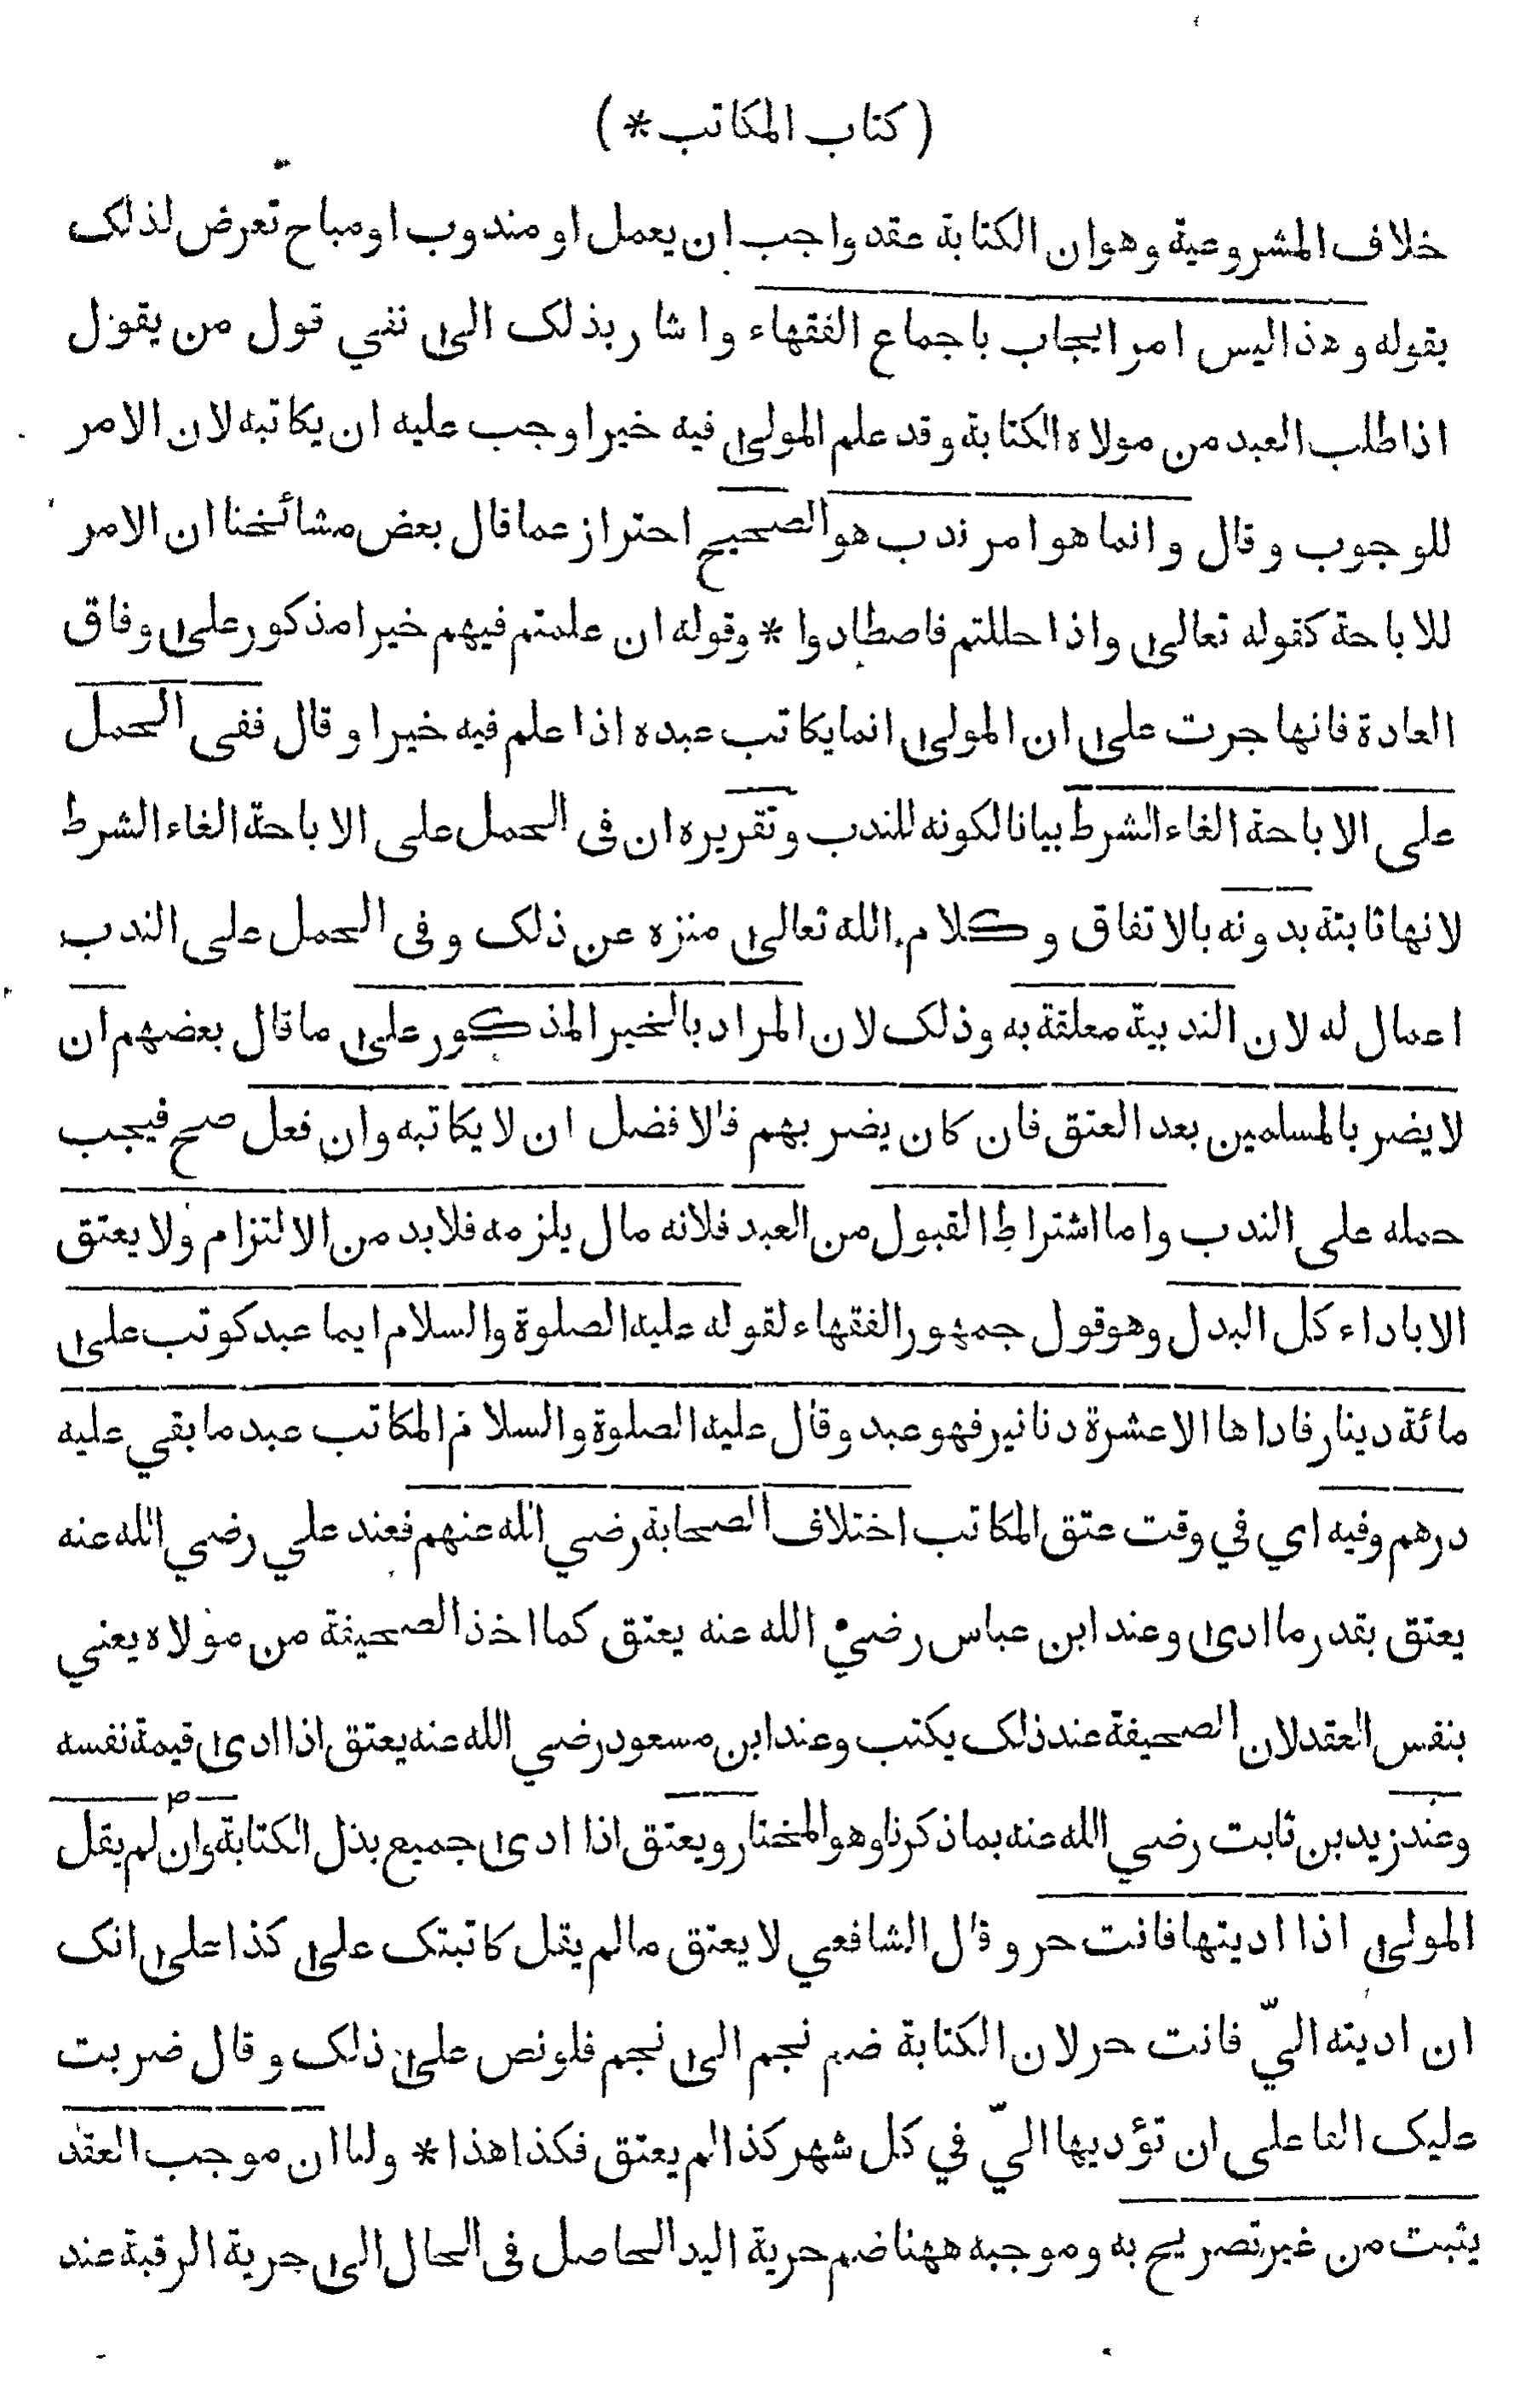 ( كتاب المكاتب * )
خلاف المشروعية وهوان الكتابة عقد واجب ان يعمل او مندوب او مباح تعرض لذلك
بقوله وهذا ليس امر ايجاب باجماع الفقهاء واشار بذلك الى نفي قول من يقول
اذا طلب العبد من مولاه الكتابة وقد علم المولى فيه خيرا وجب عليه ان يكاتبه لان الامر
للوجوب وقال وانما هو امر ندب هو الصحيح احتراز عما قال بعض مشائخنا ان الامر
للاباحة كقوله تعالى واذا حللتم فاصطادوا * وقوله ان علمتم فيهم خيرا مذكور على وفاق
العادة فانها جرت على ان المولى انما يكاتب عبده اذا علم فيه خيرا وقال ففى الحمل
على الاباحة الغاء الشرط بيانا لكونه للندب وتقريره ان فى الحمل على الاباحة الغاء الشرط
لانها ثابتة بدونه بالاتفاق وكلام الله تعالى منزه عن ذلك وفى الحمل على الندب
اعمال له لان الندبية معلقة به وذلك لان المراد بالخير المذكور على ما قال بعضهم ان
لا يضر بالمسلمين بعد العتق فان كان يضر بهم فالافضل ان لا يكاتبه وان فعل صح فيجب
حمله على الندب واما اشتراط القبول من العبد فلانه مال يلزمه فلابد من الالتزام ولا يعتق
الا باداء كل البدل وهو قول جمهور الفقهاء لقوله عليه الصلوة والسلام ايما عبد كوتب على
مائة دينار فاداها الا عشرة دنانير فهو عبد وقال عليه الصلوة والسلام المكاتب عبد ما بقي عليه
درهم وفيه اي في وقت عتق المكاتب اختلاف الصحابة رضي الله عنهم فعند علي رضي الله عنه
يعتق بقدر ما ادى وعند ابن عباس رضي الله عنه يعتق كما اخذ الصحيفة من مولاه يعني
بنفس العقد لان الصحيفة عند ذلك يكتب وعند ابن مسعود رضي الله عنه يعتق اذا ادى قيمة نفسه
وعند زيد بن ثابت رضي الله عنه بما ذكرنا وهو المختار ويعتق اذا ادى جميع بذل الكتابة وان لم يقل
المولى اذا اديتها فانت حر وقال الشافعي لا يعتق مالم يقل كاتبتك على كذا على انك
ان اديته اليّ فانت حر لان الكتابة ضم نجم الى نجم فلو نص على ذلك وقال ضربت
عليك الفا على ان تؤديها اليّ في كل شهر كذا لم يعتق فكذا هذا * ولنا ان موجب العقد
يثبت من غير تصريح به وموجبه ههنا ضم حرية اليد الحاصل فى الحال الى حرية الرقبة عند